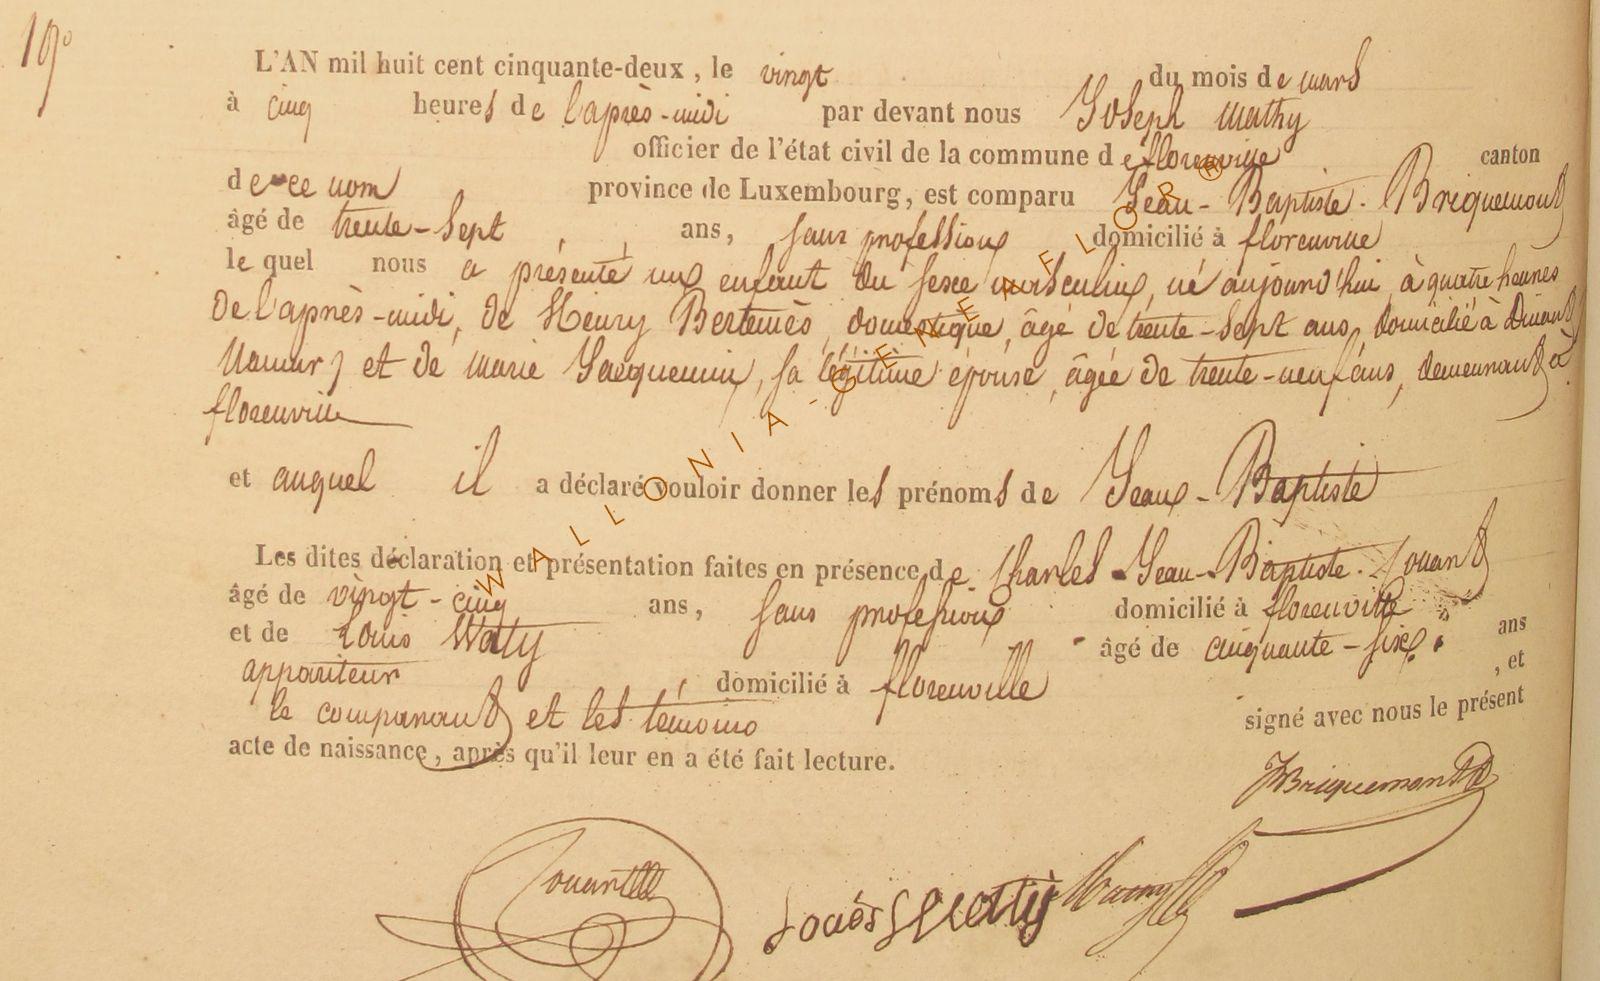 19°
L'AN mil huit cent cinquante-deux, le vingt du mois de mars
à cinq heures de l'après-midi par devant nous Joseph Mathy
officier de l'état civil de la commune de florenville canton
de ce nom province de Luxembourg, est comparu Jean-Baptiste Briquemont
âgé de trente-sept ans, sans profession domicilié à florenville
lequel nous a présenté un enfant du sexe masculin, né aujourd'hui à quatre heures
de l'après-midi, de Henry Bertemès, domestique, âgé de trente-sept ans, domicilié à Dinant
Namur) et de Marie Jacquemin, sa légitime épouse, âgée de trente-neuf ans, demeurant à
florenville
et auquel il a déclaré vouloir donner les prénoms de Jean-Baptiste
Les dites déclaration et présentation faites en présence de Charles-Jean-Baptiste Jouant
âgé de vingt-cinq ans, sans profession domicilié à florenville
et de Louis Waty âgé de cinquante-six ans
appariteur, domicilié à florenville, et
le comparant et les témoins signé avec nous le présent
acte de naissance, après qu'il leur en a été fait lecture.
JBBriquemont
Jouant
WALLONIA-GENEAFLOR®